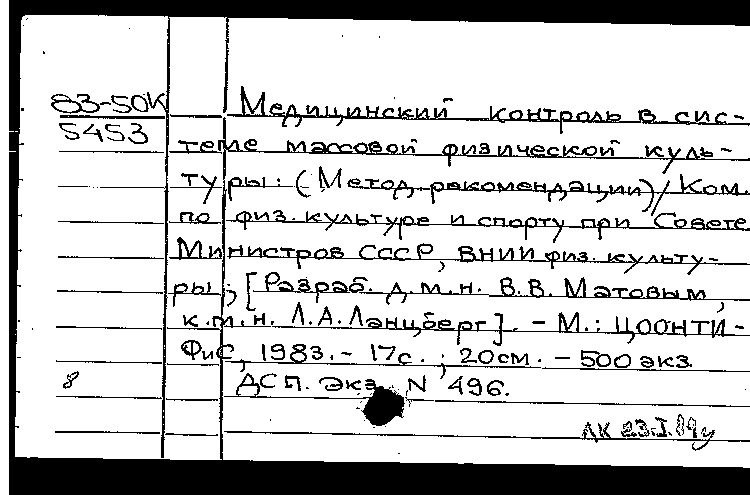 83-50К
5453
Медицинский контроль в сис-
теме массовой физической куль-
туры: (Метод. рекомендации)/Ком.
по физ. культуре и спорту при Совете
Министров СССР, ВНИИ физ. культу-
ры; [Разраб. д.м.н. В.В. Матовым,
к.м.н. Л.А. Ланцберг]. - М.: ЦООНТИ-
ФиС, 1983. - 17с.; 20см. - 500 экз.
8 ДСП. Экз. N 496.
ЛК 23.I.84